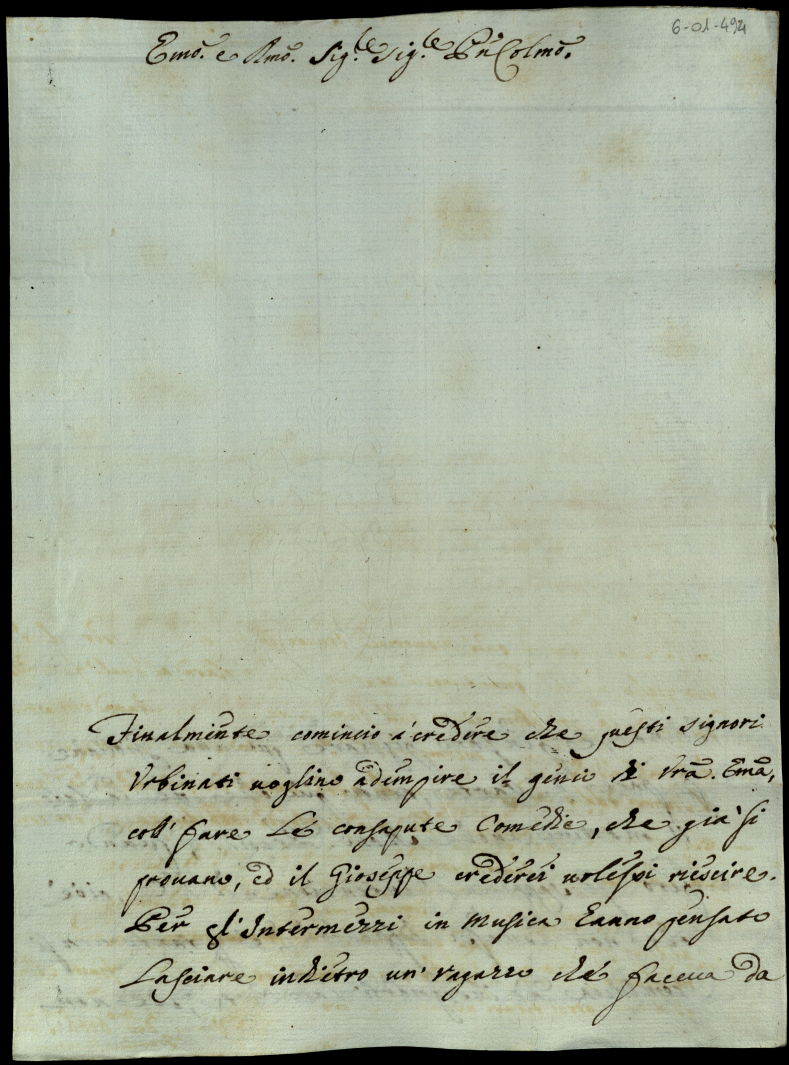 6-01-494
Emo. e Rmo. Sig.re Sig.re Pñ Colmo.
Finalmente comincio a' credere che questi signori
Urbinati voglino adempire il genio di Vrã. Emã,
coll' fare Le consapute Comedie, che gia' si
provano, ed il Gioseppe crederei volessi riescire.
Per gl'Intermezzi in Musica hanno pensato
Lasciare indietro un' ragazzo che faceva da